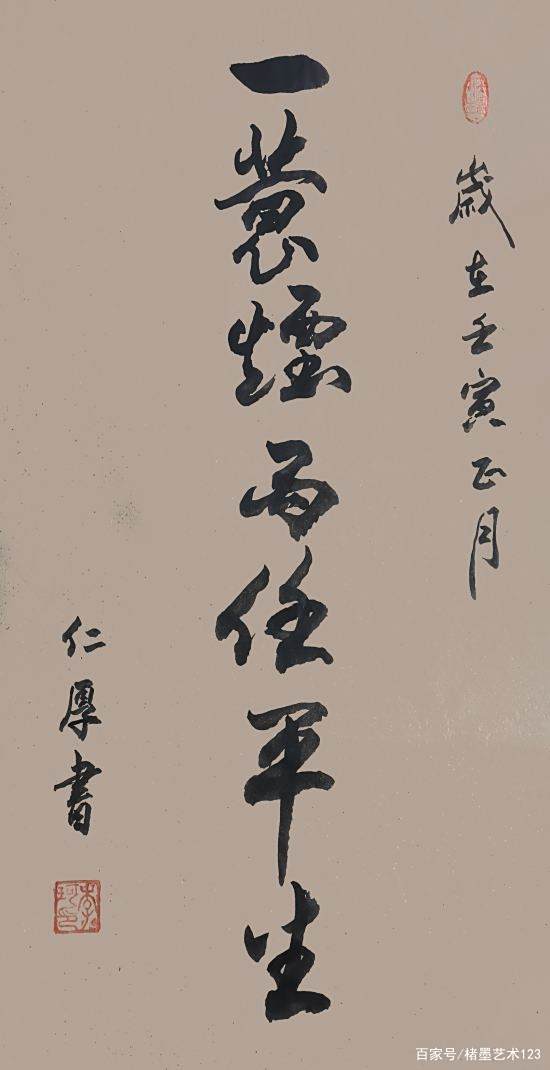 歲在壬寅正月
一蓑煙雨任平生
仁厚書
百家号/楮墨艺术123